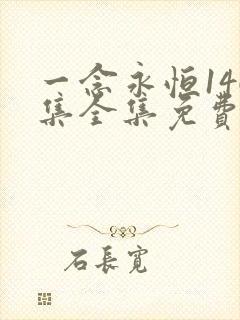 一念永恒14
集全集免费
石長寬